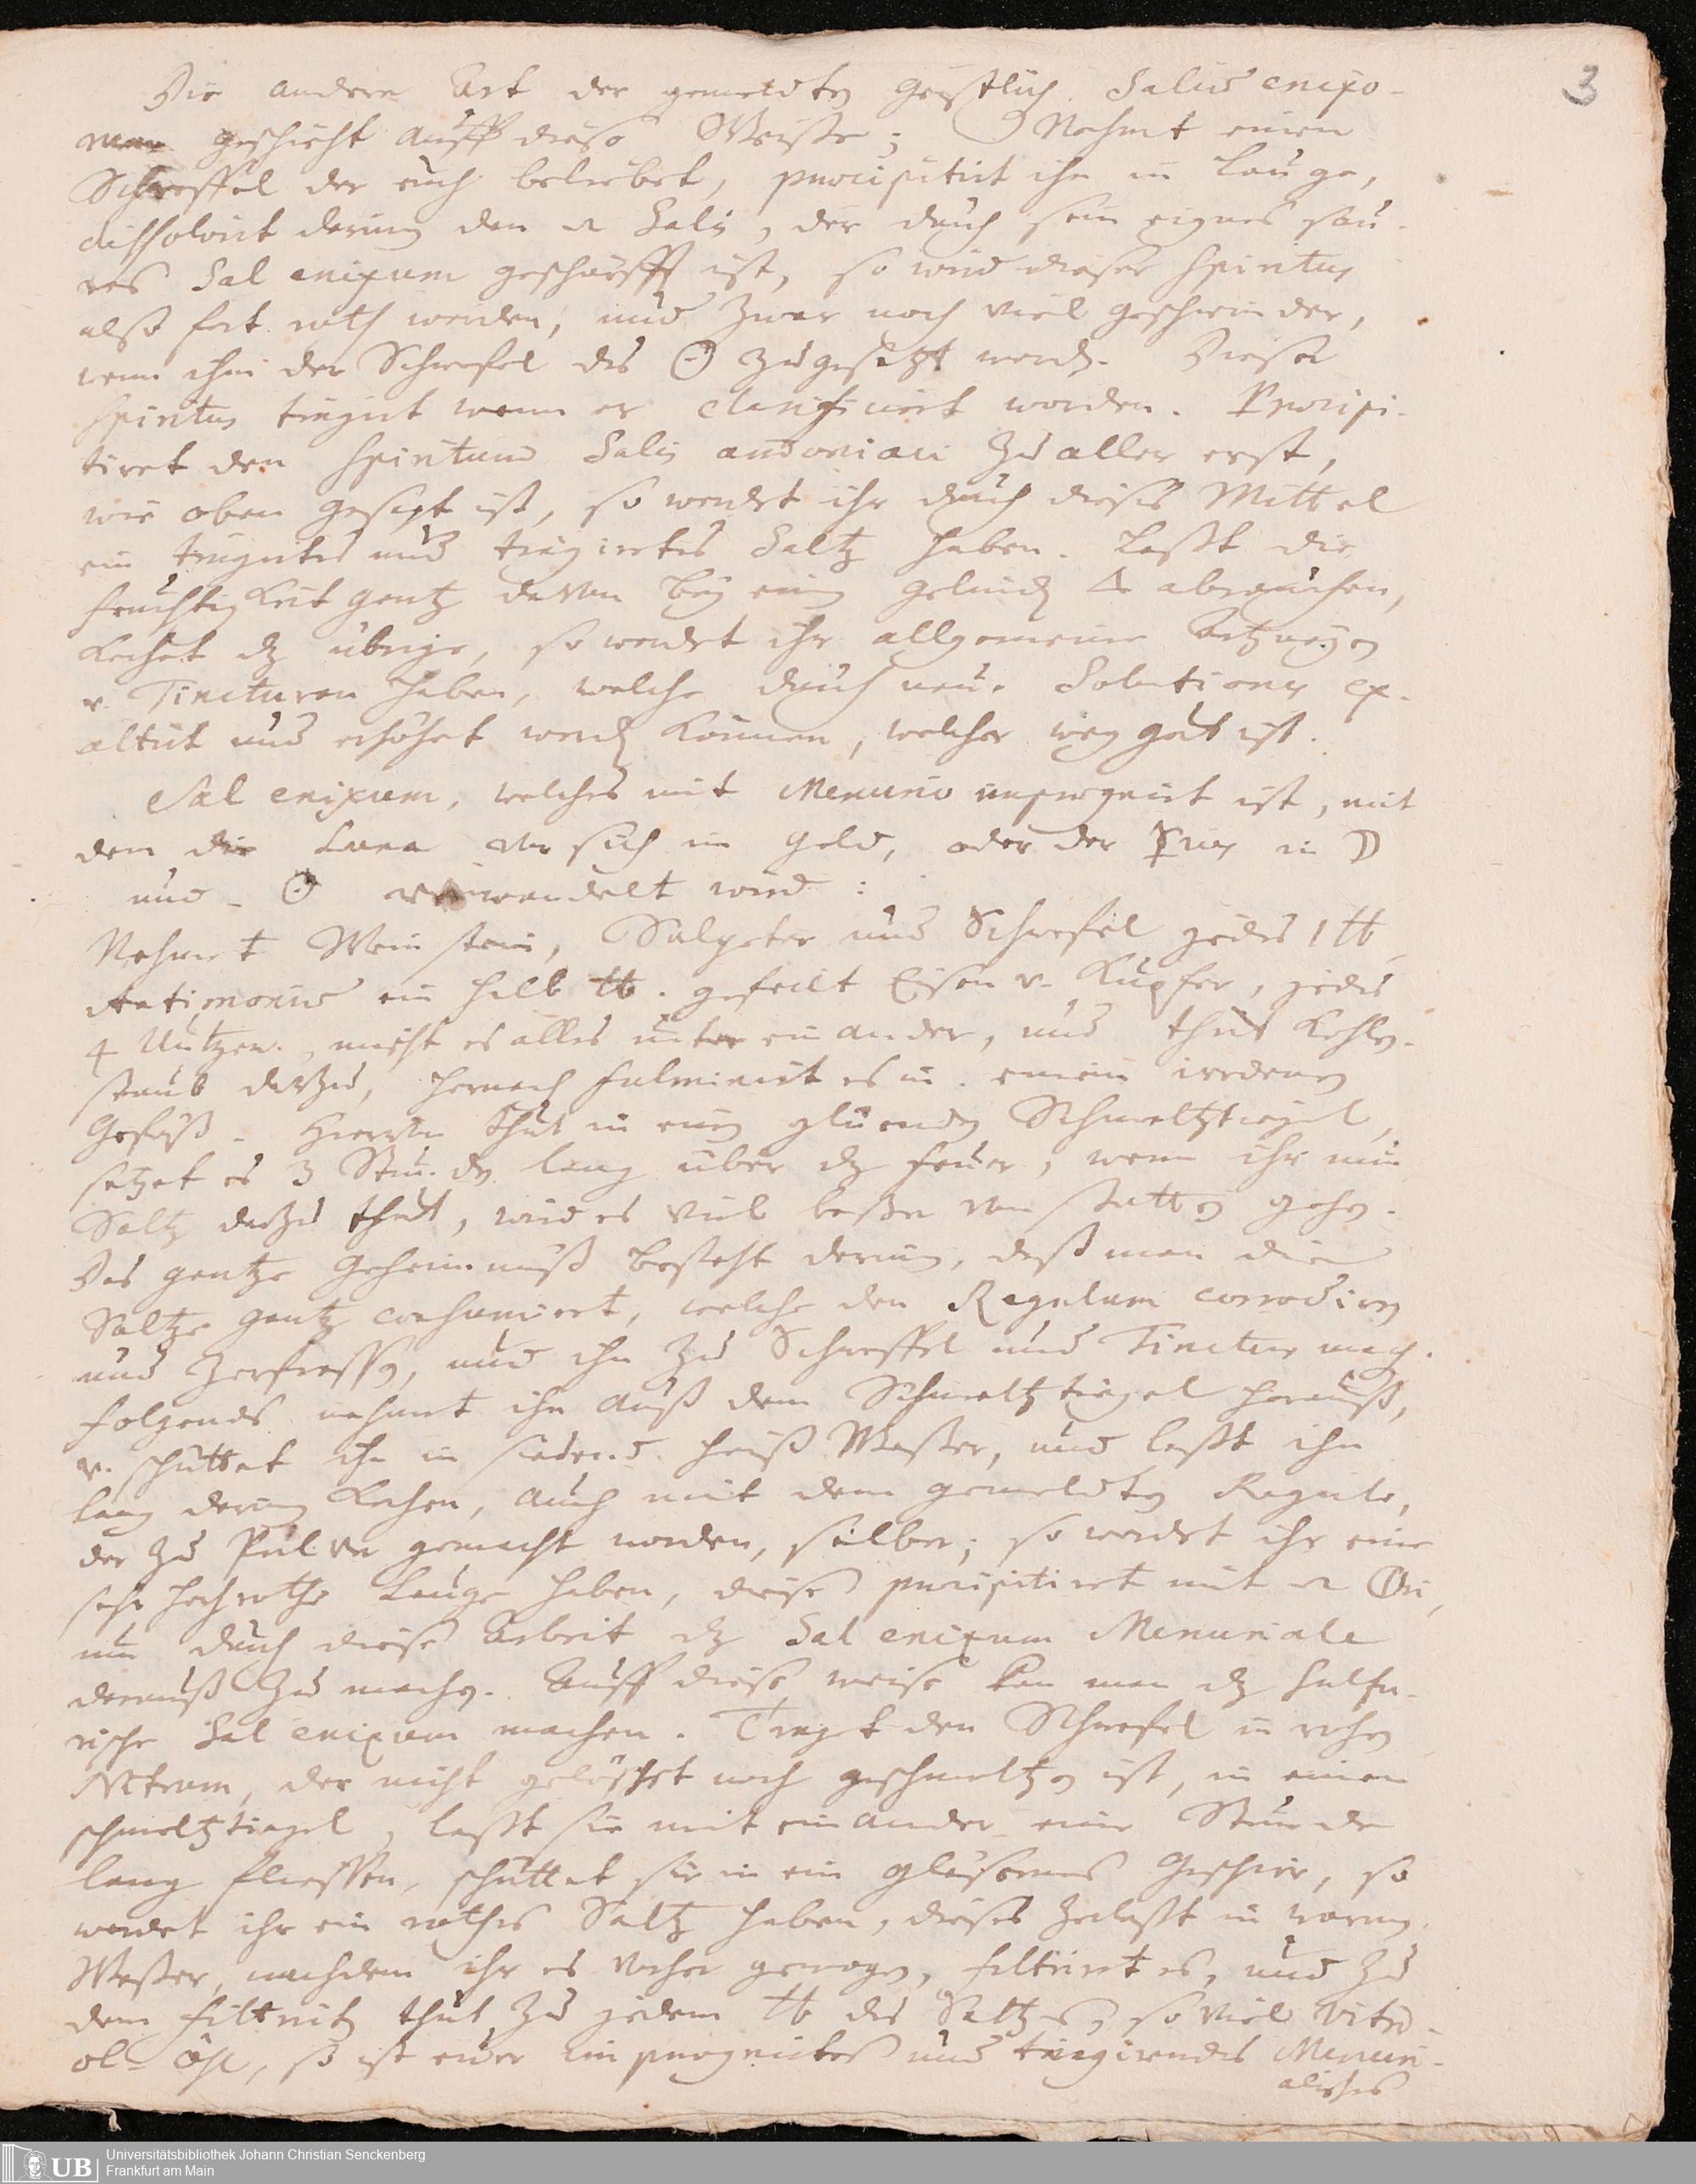 3
Die andere Art der gemeldten geistlich. Salis enixo-
rum geschicht auff diese Weise; Nehmt einen
Schweffel der euch beliebet, præcipitirt ihn in Lauge,
dissolvirt darinn den Salis, der durch sein eignes sau-
res Sal enixum geschärfft ist, so wird dieser Spiritus
alß fort roth werden, und zwar noch viel geschwinder,
wenn ihm der Schwefel des ☉ zugesetzt word. Dieser
Spiritus tingirt wenn er clarificirt worden. Præcipi-
tiret den Spiritum Salis armoniaci zu aller erst,
wie oben gesagt ist, so werdet ihr durch dieses Mittel
ein tingirtes und tingiretes Saltz haben. Laßt die
feuchtigkeit gantz davon bey einem gelinden △ abrauchen,
kochet dz übrige, so werdet ihr allgemeine Artzneyen
v. Tincturen haben, welche durch neue Solutiones ex-
altirt und erhöhet werden können, welcher weg gut ist.
Sal enixum, welches mit Mercurio impregnirt ist, mit
dem die Luna sich in Gold, oder der in ☽
und ☉ verwandelt wird:
Nehmet Weinstein, Salpeter und Schwefel jedes 1 ℔
Antimonii ein halb ℔. gefeilt Eisen v. Kupfer, jedes
4 Untzen, mischt es alles unter einander, und thut Kohlen-
staub darzu, hernach fulminirt es in einem irdenen
Gefäß. Hiervon thut in einen glüenden Schmeltztiegel,
setzet es 3 Stunden lang über dz feuer, wenn ihr nun
Saltz darzu thut, wird es viel besser von statten gehen.
Das gantze Geheimnuß besteht darinn, daß man die
Saltze gantz consumirt, welche den Regulum corrodiren
und zerfressen, und ihn zu Schweffel und Tinctur mach.
folgends nehmet ihn auß dem Schmeltztiegel herauß,
v. schüttet ihn in siedend heiß Wasser, und laßt ihn
lang darinn kochen, auch mit dem gemeldten Regulo,
der zu Pulver gemacht worden, selber; so werdet ihr eine
sehr hochrothe Lauge haben, diese præcipitiret mit
um durch diese Arbeit dz Sal enixum Mercuriale
darauß zu machen. Auff diese weise kan man dz Sulfu-
rische Sal enixum machen. Traget den Schwefel in rohen
Nitrum, der nicht gelöschet noch geschmeltzen ist, in einen
schmeltztiegel, laßt sie mit einander eine Stunde
lang fliessen, schüttet sie in ein gläsernes Geschirr, so
werdet ihr ein rothes Saltz haben, dieses zerlaßt in warmen
Wasser, nachdem ihr es vorher gewogen, filtriret es, und zu
dem filtrirten thut zu jedem ℔ des Saltzes, so viel Vitri-
ol-Öhl, so ist euer impregnirtes und tingirendes Mercuri-
alisches
Universitätsbibliothek Johann Christian Senckenberg
UB Frankfurt am Main